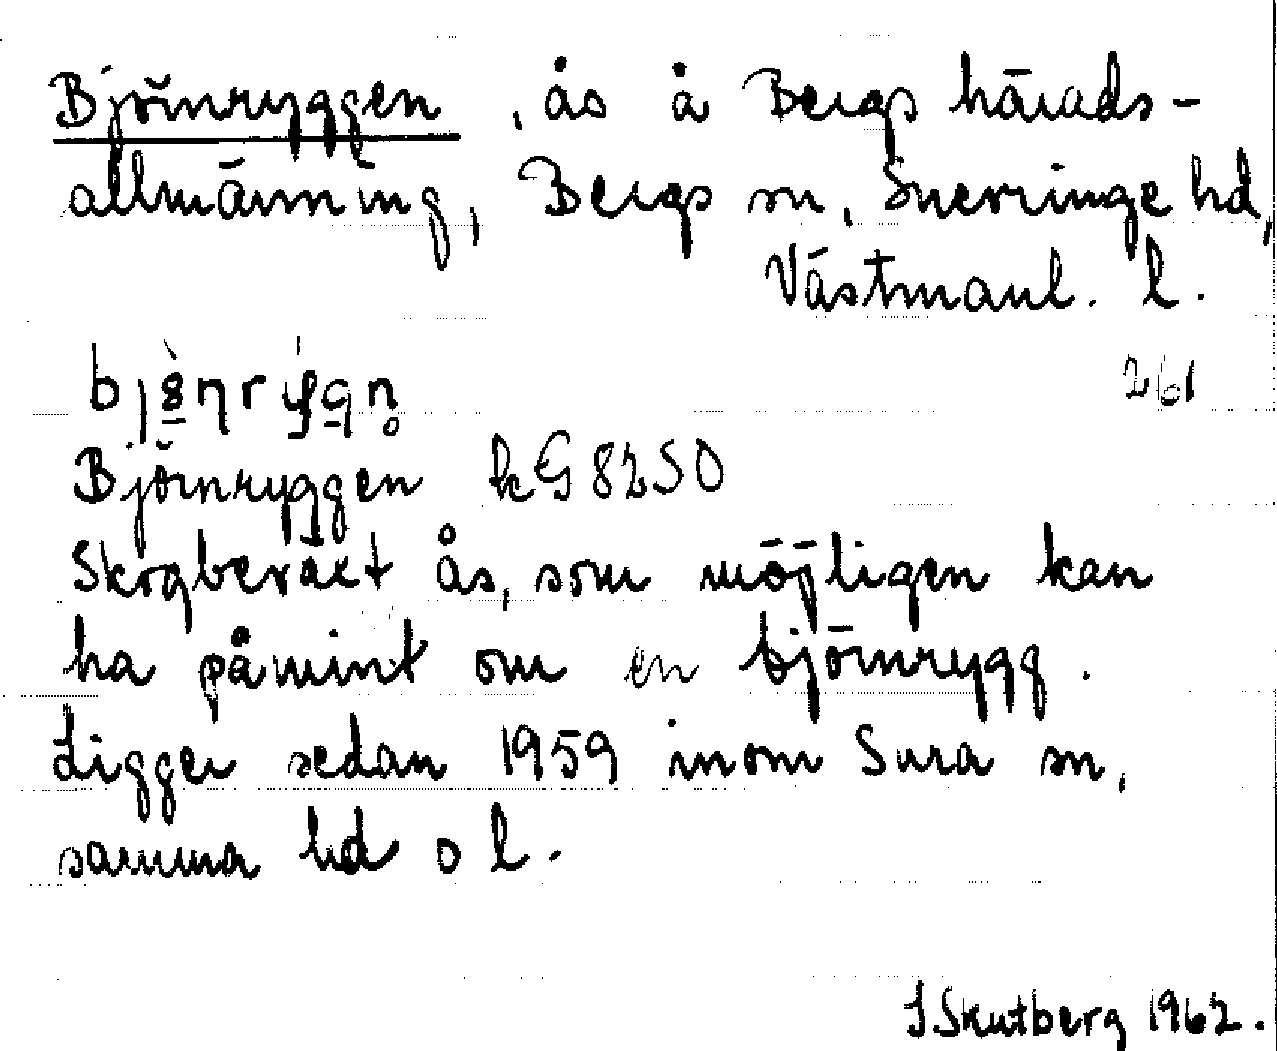 Björnryggen, ås å Bergs härads-
allmänning, Bergs sn, Snevringe hd,
Västmanl. l.
261
Björnryggen kG 8250
Skogbeväxt ås, som möjligen kan
ha påmint om en björnrygg.
Ligger sedan 1959 inom Sura sn,
samma hd o l.
I. Skutberg 1962.